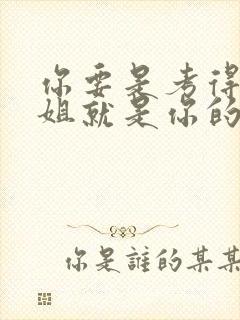 你要是考得
姐就是你的
你是誰的某某